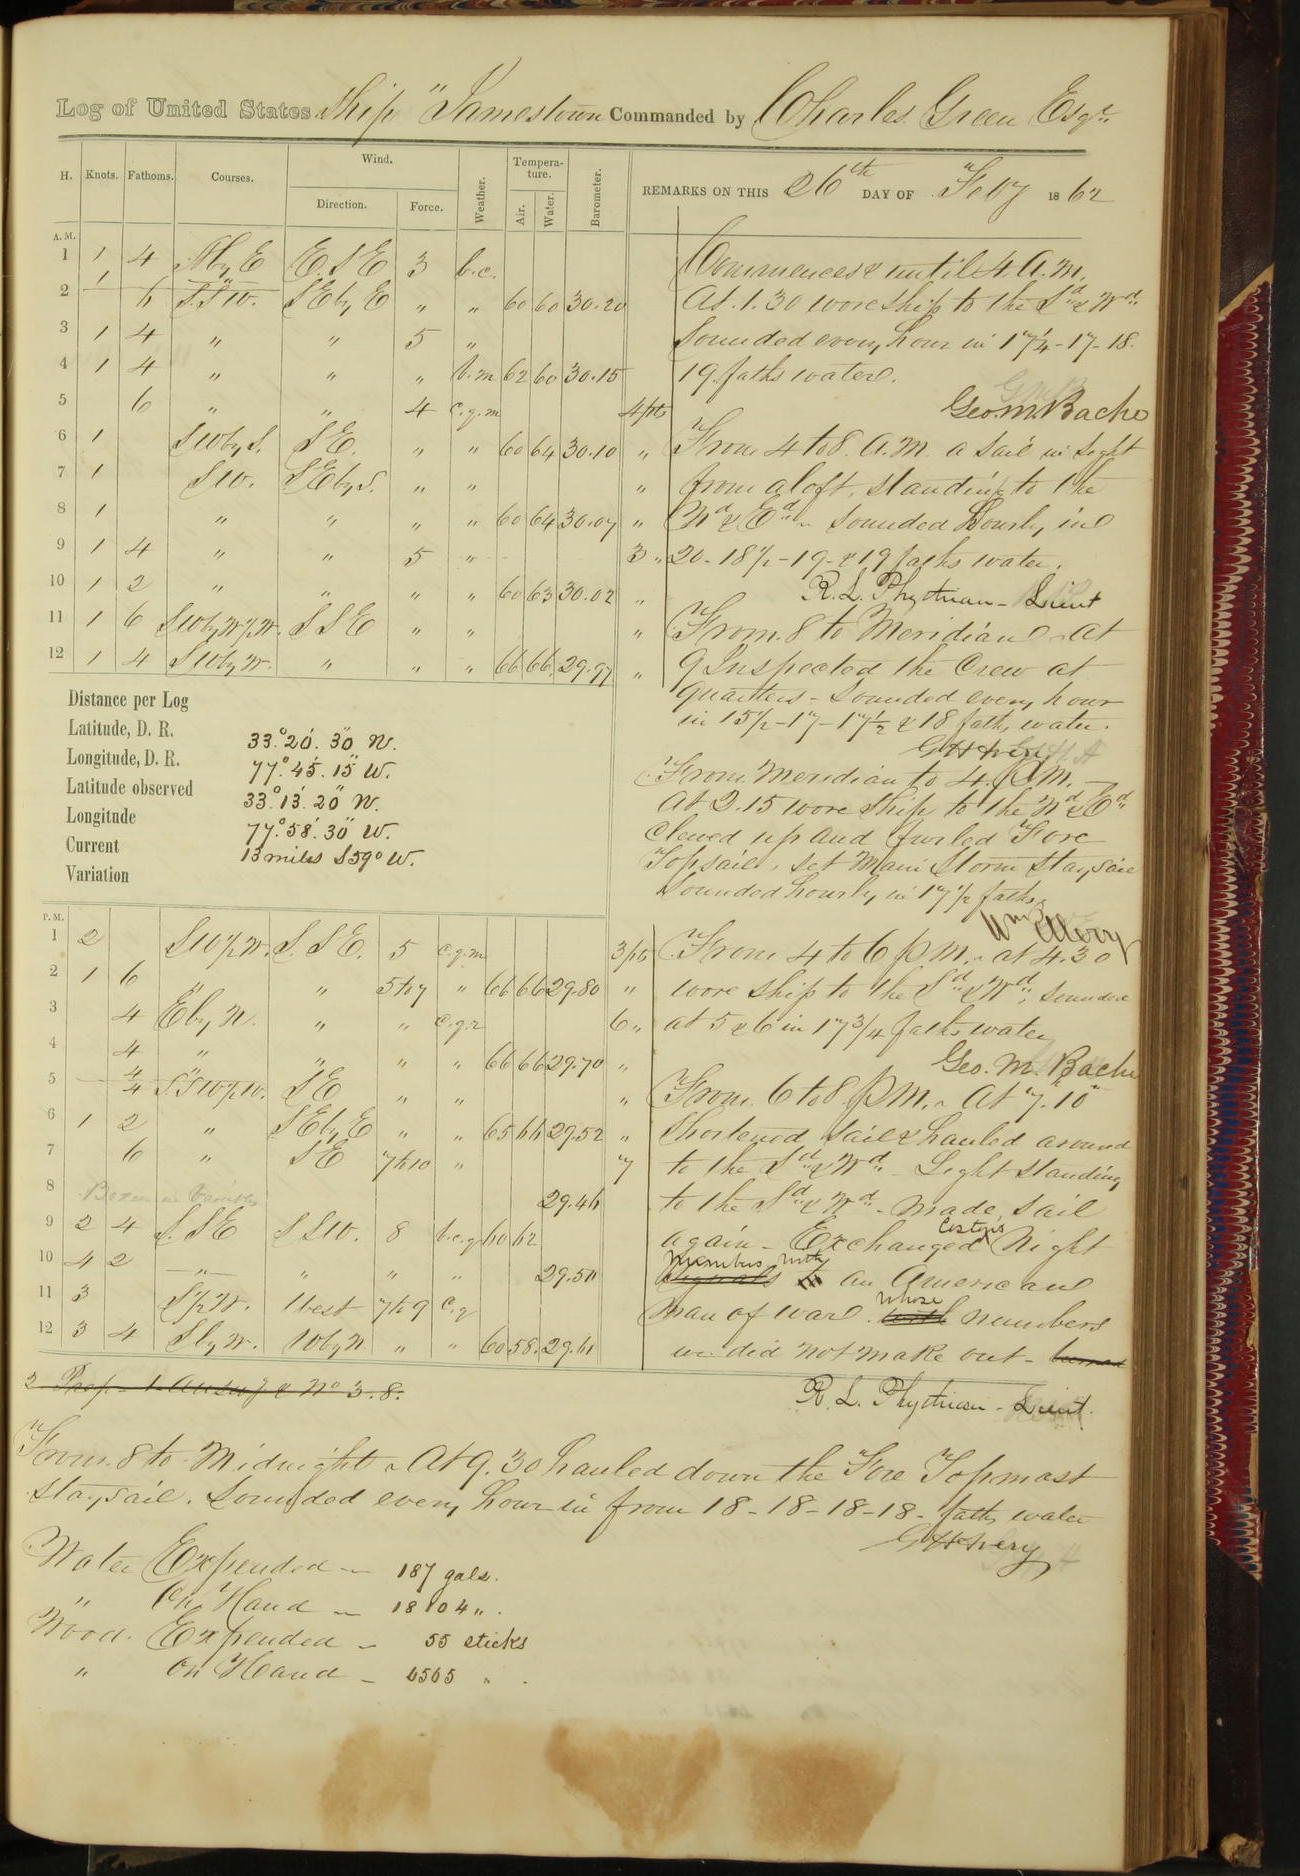 Log of United States Ship "Jamestown Commanded by Charles Green Esqr.
H. Knots. Fathoms. Courses. Wind. Direction. Force. Weather. Temperature. Air. Water. Barometer. REMARKS ON THIS 26th DAY OF Feby 1862
A. M.
1 1 4 N by E E. S E 3 b.c.
2 1 6 S.S W. S E by E " " 60 60 30.20
3 1 4 " " 5 "
4 1 4 " " " b.m 62 60 30.15
5 6 " " 4 c.g.m 4 pts
6 1 S W by S. S E. " " 60 64 30.10 "
7 1 S W. S E by S. " " "
8 1 " " " " 60 64 30.07 "
9 1 4 " " 5 " 3 "
10 1 2 " " " " 60 63 30.02 "
11 1 6 S W by W ½ W. S S E " " "
12 1 4 S W by W. " " " 66 66 29.97 "
Commences & until 4 A.M.
At 1.30 wore ship to the Sd & Wd
Sounded every hour in 17¼-17-18.
19 faths water.
Geo. M. Bache
From 4 to 8 A.M. a sail in sight
from aloft, standing to the
Nd & Ed - Sounded Hourly in
20-18½-19-&19 faths water.
R. L. Phythian - Lieut
From 8 to Meridian - At
9 Inspected the Crew at
Quarters - Sounded every hour
in 15½-17-17½ & 18 faths water.
Distance per Log
Latitude, D. R. 33° 20' 30" N.
Longitude, D. R. 77° 45' 15" W.
Latitude observed 33° 13' 20" N.
Longitude 77° 58' 30" W.
Current 13 miles S 59° W.
Variation
From Meridian to 4 P.M. -
At 2.15 wore Ship to the Nd & Ed
Clewed up and furled Fore
Topsail, set Main Storm Staysail
Sounded hourly in 17½ faths.
P. M.
1 2 S W ½ W. S. S E. 5 c.g.m 3 pts
2 1 6 " " 5 to 7 " 66 66 29.80 "
3 4 E by N. " " c.g.r 6 "
4 4 " " " " 66 66 29.70 "
5 4 4 S. S W ½ W. S E " " "
6 1 2 " S E by E " " 65 66 29.52 "
7 6 " S E 7 to 10 " 7
8 29.46
9 2 4 S. S E S S W. 8 b.c.q 60 62
10 4 2 " " " " 29.50
11 3 S ½ W. West 7 to 9 c.q
12 3 4 S by W. W by N " " 60 58. 29.61
Wm Ellery
From 4 to 6 P.M. at 4.30
wore ship to the Sd & Wd, Sounded
at 5 & 6 in 17¾ faths water
Geo. M. Bache
From 6 to 8 P.M. At 7.10
Shortened sail & hauled around
to the Sd & Wd - Light standing
to the Sd & Wd - Made sail
again - Exchanged Coston's Night
signals numbers with an American
man of war. with whose numbers
we did not make out -
R. L. Phythian - Lieut.
From 8 to Midnight - At 9.30 hauled down the Fore Topmast
staysail. Sounded every hour in from 18-18-18-18- faths water
Water Expended - 187 gals.
" On Hand - 18104 ".
Wood. Expended - 55 sticks
" On Hand - 4565 " .